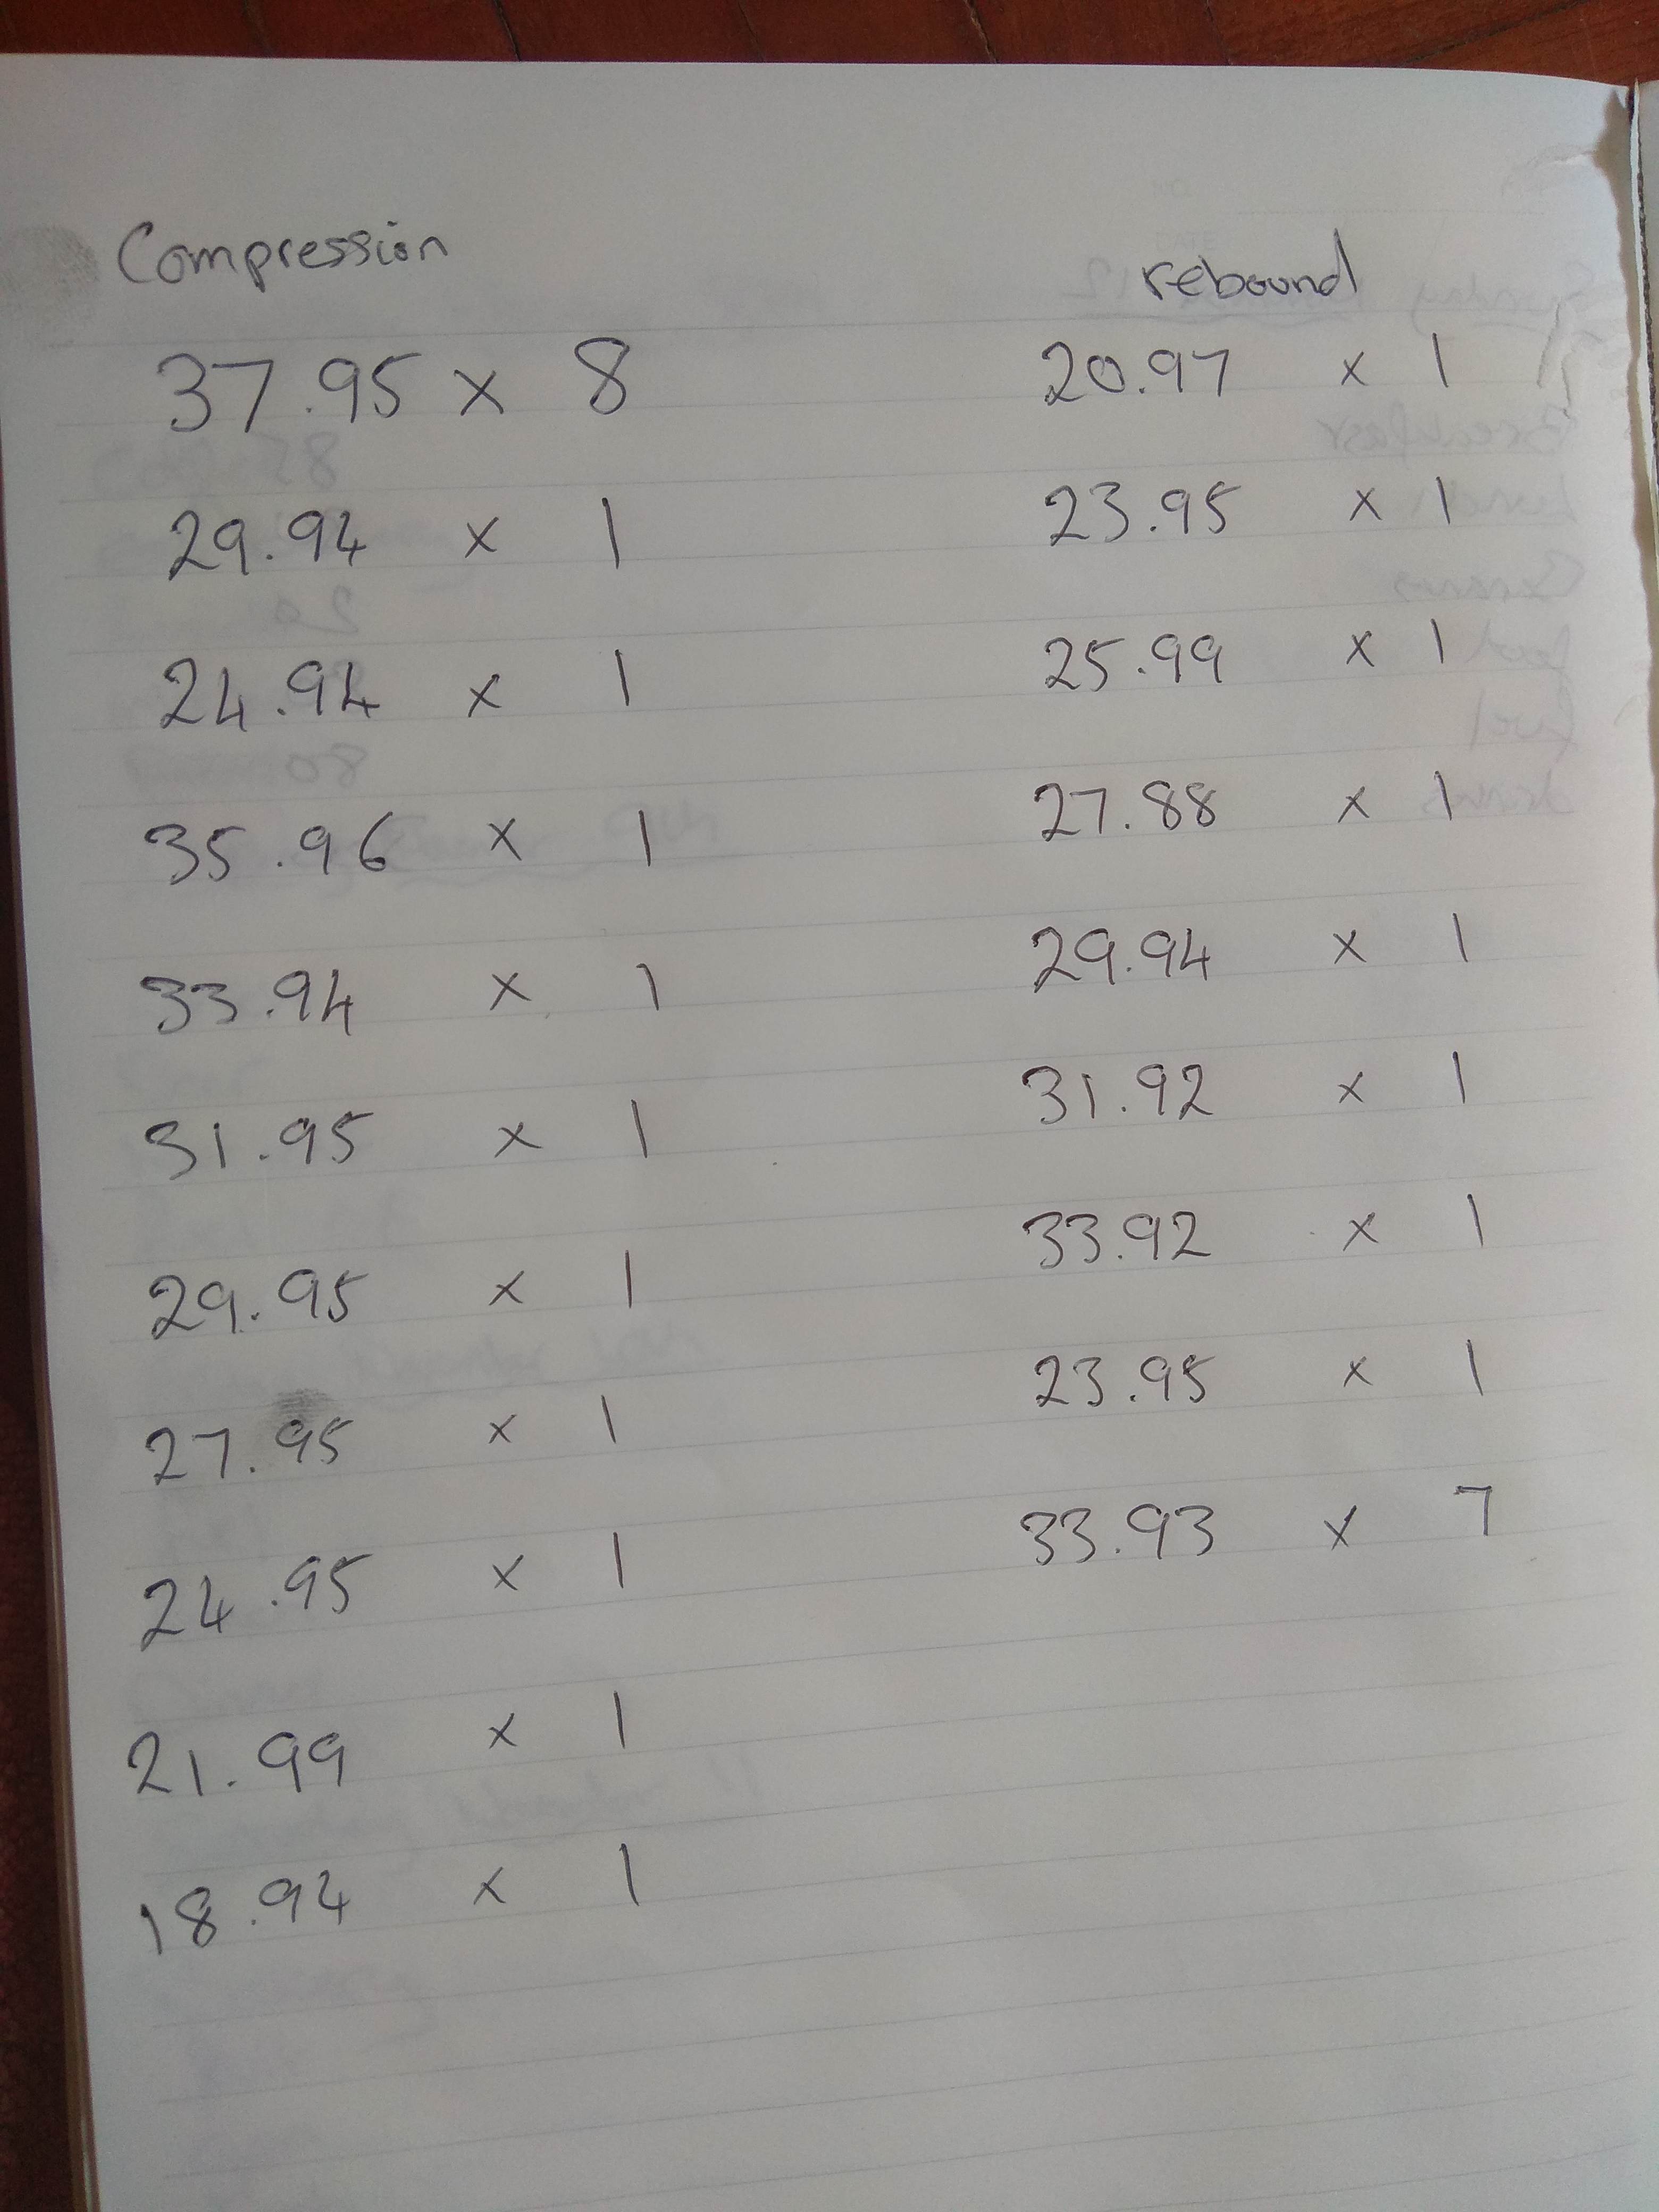 Compression
37.95 x 8
29.94 x 1
24.94 x 1
35.96 x 1
33.94 x 1
31.95 x 1
29.95 x 1
27.95 x 1
24.95 x 1
21.99 x 1
18.94 x 1
rebound
20.97 x 1
23.95 x 1
25.99 x 1
27.88 x 1
29.94 x 1
31.92 x 1
33.92 x 1
23.95 x 1
33.93 x 7